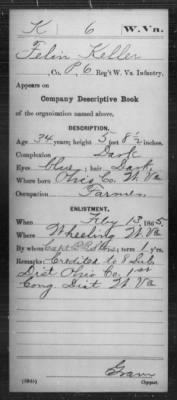 K 6 W. Va.
Felix Keller
, Co. P, 6 Reg't W. Va. Infantry.
Appears on
Company Descriptive Book
of the organization named above.
DESCRIPTION.
Age 34 years; height 5 feet 8½ inches.
Complexion Dark
Eyes blue; hair Dark
Where born Ohio Co. W. Va
Occupation Farmer
ENLISTMENT.
When Feby 13, 1865.
Where Wheeling W. Va
By whom Capt. ; term 1 y'rs.
Remarks: Credited to 8 Sub.
Dist Ohio Co. 1st
Cong Dist W. Va
Copyist.